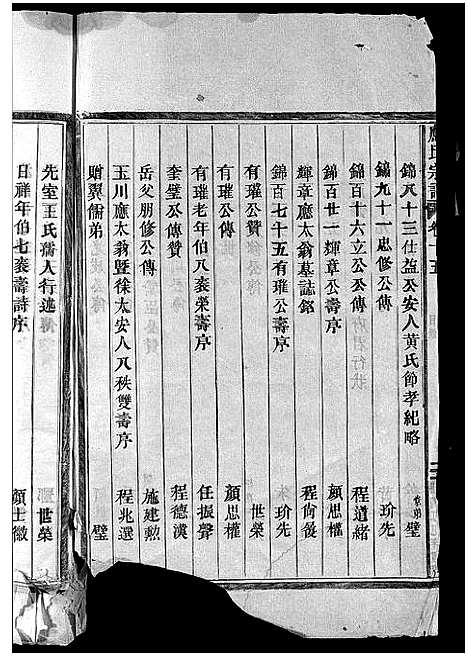 應氏宗譜 卷十五
錦八十三仕益公安人黃氏節孝紀略 弟璧
錦九十一忠修公傳 玠先
錦百十六立公公傳 程道緒
錦百廿一輝章公傳 顏思權
輝章應太翁墓誌銘 程尚後
錦百七十五有璀公壽序 玠先
有璀公傳 世榮
有璀公傳 顏思權
有璀老年伯八袠榮壽序 任振聲
奎璧公傳贊 程德漢
岳父朋修公傳 施建勲
玉川應太翁暨徐太安人八秩雙壽序 程兆選
贈翼儒弟 璧
先室王氏孺人行述 世榮
日祥年伯七袠壽詩序 顏士徽